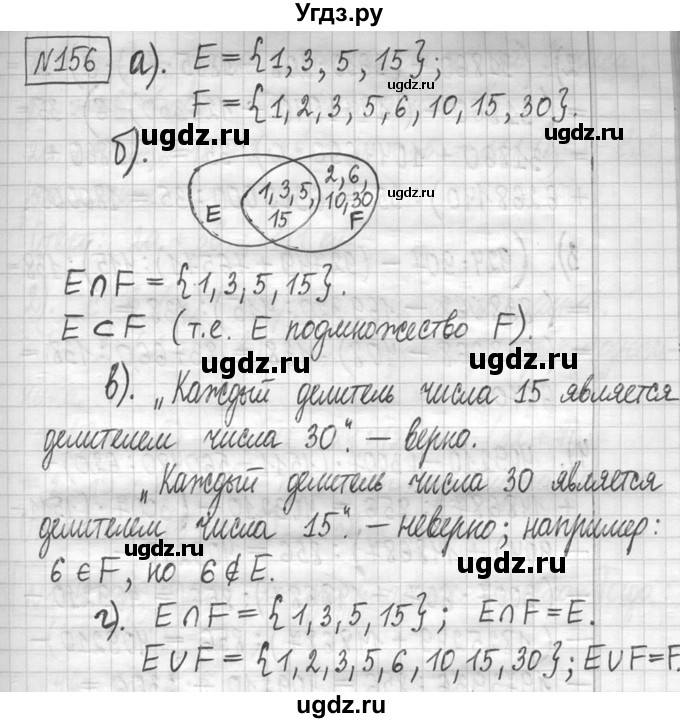 Угдз.ру
№156 а). E = {1, 3, 5, 15};
F = {1, 2, 3, 5, 6, 10, 15, 30}.
ugdz.ru
ugdz.ru
б).
E
1, 3, 5,
15
2, 6,
10, 30
F
ugdz.ru
E∩F = {1, 3, 5, 15}.
E⊂F (т.е. E подмножество F).
ugdz.ru
ugdz.ru
в). „Каждый делитель числа 15 является
делителем числа 30". – верно.
„Каждый делитель числа 30 является
делителем числа 15". – неверно; например:
ugdz.ru
ugdz.ru
6 ∈ F, но 6 ∉ E.
г). E∩F = {1, 3, 5, 15}; E∩F = E.
ugdz.ru
ugdz.ru
E∪F = {1, 2, 3, 5, 6, 10, 15, 30}; E∪F = F.
ugdz.ru